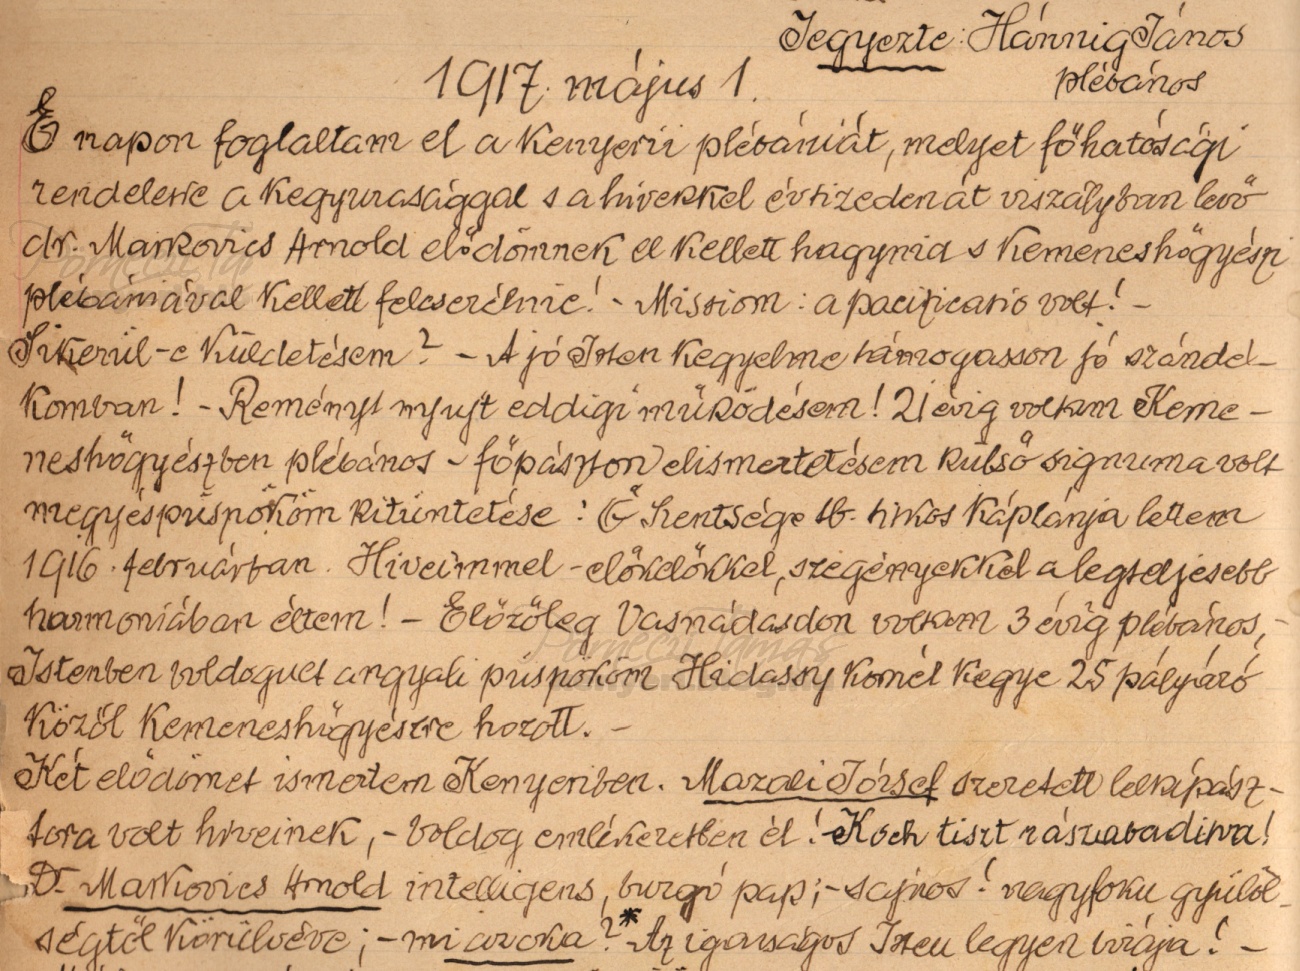 Jegyezte: Hánnig János
plébános
1917. május 1.
E napon foglaltam el a Kenyerii plébániát, melyet főhatósági
rendeletre a kegyurasággal s a hívekkel évtizeden át viszályban levő
dr. Markovics Arnold elődömnek el kellett hagynia s kemeneshőgyészi
plébániával kellett felcserélnie! - Missiom: a pacificatio volt! -
Sikerül-e küldetésem? - A jó Isten kegyelme támogasson jó szándé-
komban! - Reményt nyujt eddigi működésem! 21 évig voltam Keme-
neshőgyészben plébános - főpásztori elismertetésem külső signuma volt
megyéspüspököm kitüntetése: Ő Szentsége tb. titkos káplánja lettem
1916. februárban. Híveimmel - előkelőkkel, szegényekkel a legteljesebb
harmoniában éltem! - Előzőleg Vasnádasdon voltam 3 évig plébános, -
Istenben boldogult angyali püspököm Hidassy Kornél kegye 25 pályázó
közől Kemeneshőgyészre hozott. -
Két elődömet ismertem Kenyeriben. Mazali József szeretett lelkipász-
tora volt híveinek, - boldog emlékezetben él! - Koch tiszt rászabadítva!
Dr. Markovics Arnold intelligens, buzgó pap; - sajnos! nagyfoku gyülöl-
ségtől körülvéve; - mi az oka?* Az igazságos Isten legyen birája! -